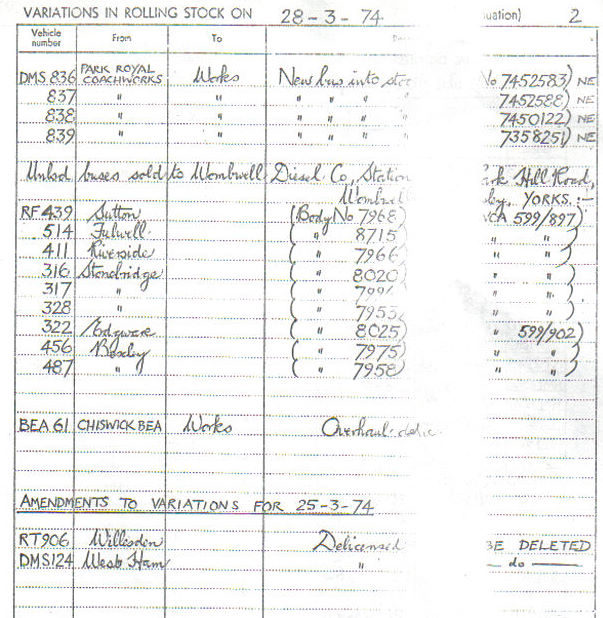 VARIATIONS IN ROLLING STOCK ON 28-3-74 uation) 2
Vehicle number From To
DMS 836 PARK ROYAL COACHWORKS Works New bus into sto No 7452583) NE
837 " " " " " " 7452588) NE
838 " " " " " " 7450122) NE
839 " " " " " " 7358251) NE
Unlsd buses sold to Wombwell Diesel Co, Station rk Hill Road,
Wombwell by, YORKS. :-
RF 439 Sutton (Body No 7968) VCA 599/897)
514 Fulwell ( " 8715 " " )
411 Riverside ( " 7966 " " )
316 Stonebridge ( " 8020) " " )
317 " ( " " " )
328 " ( " 7953 " " )
322 Edgware ( " 8025) " 599/902)
456 Bexley ( " 7975) " " )
487 " ( " 7958) " " )
BEA 61 CHISWICK BEA Works Overhaul
AMENDMENTS TO VARIATIONS FOR 25-3-74
RT906 Willesden Delicensed BE DELETED
DMS124 West Ham " — do —